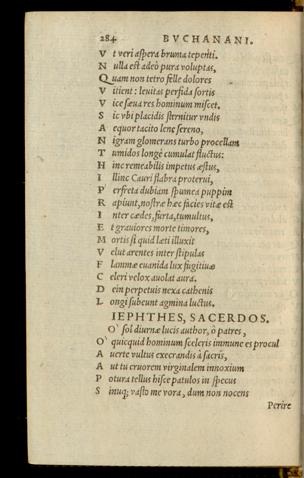 284 BVCHANANI.
V t veri aspera bruma tepenti.
N ulla est adeò pura voluptas,
Q uam non tetro felle dolores
V itient: leuitas perfida sortis
V ice sæua res hominum miscet.
S ic vbi placidis sternitur vndis
A equor tacito lene sereno,
N igram glomerans turbo procellam
T umidos longè cumulat fluctus:
H inc remeabilis impetus æstus,
I llinc Cauri flabra proterui,
P erfreta dubiam spumea puppim
R apiunt, nostræ hæc facies vitæ est
I nter cædes, furta, tumultus,
E t grauiores morte timores,
M ortis si quid læti illuxit
V elut arentes inter stipulas
F lammæ euanida lux fugitiuæ
C eleri velox auolat aura.
D ein perpetuis nexa cathenis
L ongi subeunt agmina luctus.
IEPHTHES, SACERDOS.
O' sol diurnæ lucis author, ò patres,
O' quicquid hominum sceleris immune es procul
A uerte vultus execrandis à sacris,
A ut tu cruorem virginalem innoxium
P otura tellus hisce patulos in specus
S inuq; vasto me vora, dum non nocens
Perire